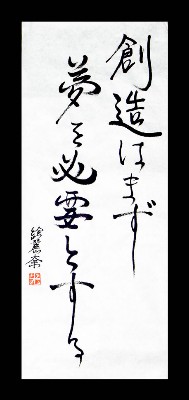 創造はまず
夢を必要とする